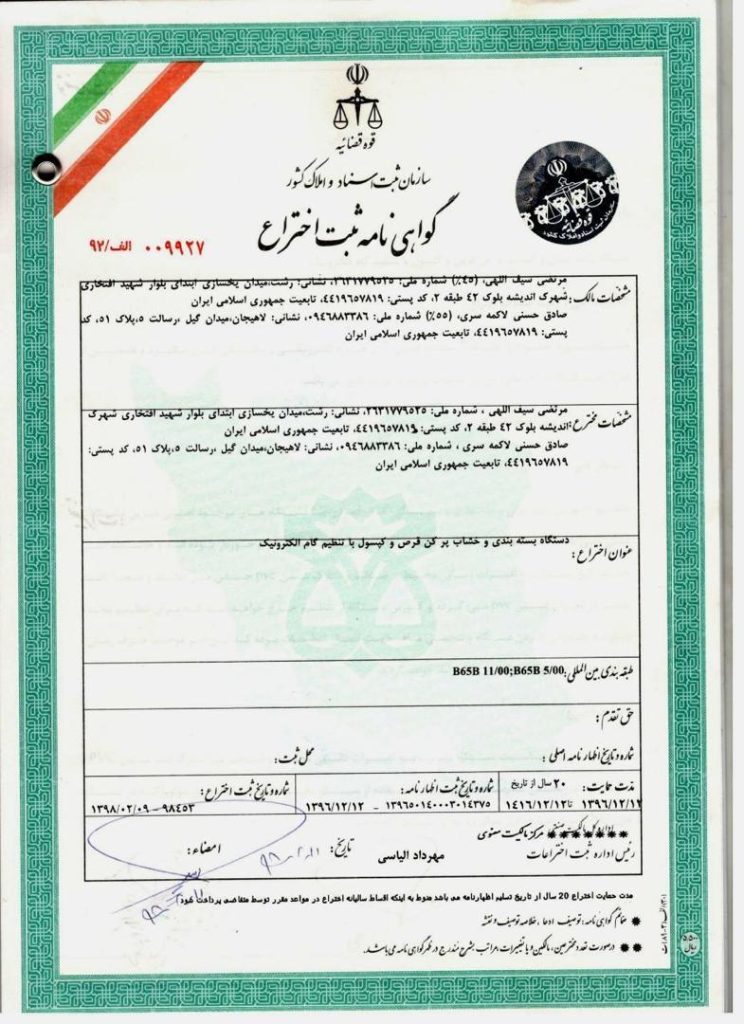 قوه قضائیه
سازمان ثبت اسناد و املاک کشور
گواهی نامه ثبت اختراع
الف/۹۲ ۰۰۹۹۲۷
قوه قضائیه
سازمان ثبت اسناد و املاک کشور
مشخصات مالک:
مرتضی سیف اللهی، (۴۵٪) شماره ملی: ۲۶۳۱۷۷۹۵۲۵، نشانی: رشت،میدان یخسازی ابتدای بلوار شهید افتخاری
شهرک اندیشه بلوک ۴۲ طبقه ۲، کد پستی: ۴۴۱۹۶۵۷۸۱۹، تابعیت جمهوری اسلامی ایران
صادق حسنی لاکمه سری، (۵۵٪) شماره ملی: ۰۹۴۶۸۸۳۳۸۶، نشانی: لاهیجان،میدان گیل ،رسالت ۵،پلاک ۵۱، کد
پستی: ۴۴۱۹۶۵۷۸۱۹، تابعیت جمهوری اسلامی ایران
مشخصات مخترع:
مرتضی سیف اللهی ، شماره ملی: ۲۶۳۱۷۷۹۵۲۵، نشانی: رشت،میدان یخسازی ابتدای بلوار شهید افتخاری شهرک
اندیشه بلوک ۴۲ طبقه ۲، کد پستی: ۴۴۱۹۶۵۷۸۱۹، تابعیت جمهوری اسلامی ایران
صادق حسنی لاکمه سری ، شماره ملی: ۰۹۴۶۸۸۳۳۸۶، نشانی: لاهیجان،میدان گیل ،رسالت ۵،پلاک ۵۱، کد پستی:
۴۴۱۹۶۵۷۸۱۹، تابعیت جمهوری اسلامی ایران
عنوان اختراع:
دستگاه بسته بندی و خشاب پر کن قرص و کپسول با تنظیم گام الکترونیک
طبقه بندی بین المللی: B65B 11/00;B65B 5/00
حق تقدم:
شماره و تاریخ اظهارنامه اصلی: محل ثبت:
مدت حمایت: ۲۰ سال از تاریخ
۱۳۹۶/۱۲/۱۲ تا ۱۴۱۶/۱۲/۱۲
شماره و تاریخ ثبت اظهارنامه:
۱۳۹۶۵۰۱۴۰۰۰۳۰۱۴۳۷۵ - ۱۳۹۶/۱۲/۱۲
شماره و تاریخ ثبت اختراع:
۹۸۴۵۳ - ۱۳۹۸/۰۲/۰۹
مرکز مالکیت معنوی
رئیس اداره ثبت اختراعات مهرداد الیاسی تاریخ: امضاء:
مدت حمایت اختراع 20 سال از تاریخ تسلیم اظهارنامه می باشد منوط به اینکه اقساط سالیانه اختراع در مواعد مقرر توسط متقاضی پرداخت شود
** ضمائم گواهی نامه: توصیف، ادعا ، خلاصه توصیف و نقشه
** در صورت تعدد مخترعین، مالکین و یا تغییرات، مراتب بشرح مندرج در ظهر گواهی نامه می باشد.